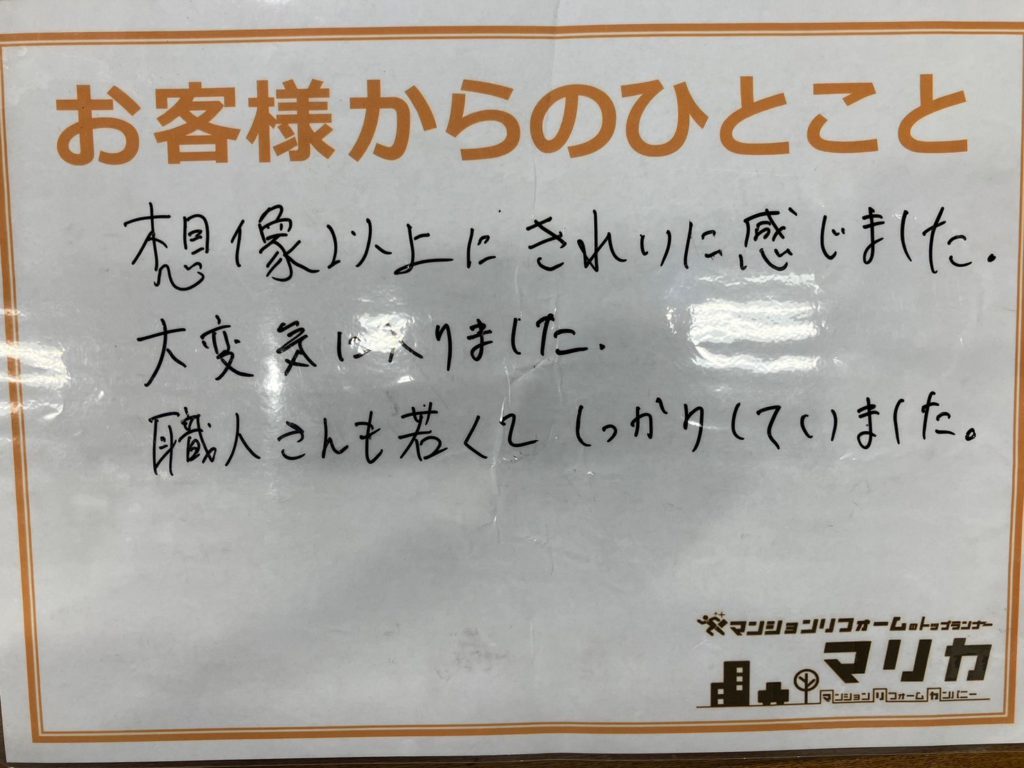 お客様からのひとこと
想像以上にきれいに感じました.
大変気に入りました.
職人さんも若くてしっかりしていました。
マンションリフォームのトップランナー
マリカ
マンションリフォームカンパニー